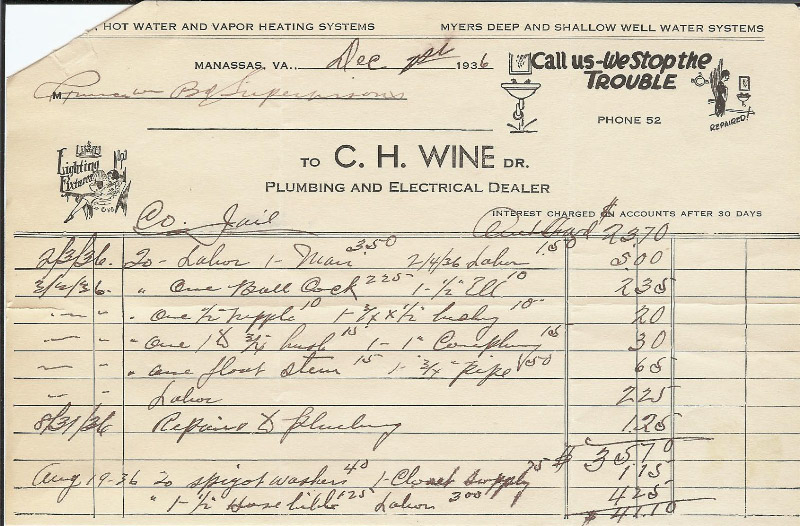 , HOT WATER AND VAPOR HEATING SYSTEMS MYERS DEEP AND SHALLOW WELL WATER SYSTEMS
MANASSAS, VA., Dec 1st 1936
Call us-We Stop the TROUBLE
M Bd Supervisors
PHONE 52
REPAIRED!
TO C. H. WINE DR.
Lighting Fixtures
PLUMBING AND ELECTRICAL DEALER
INTEREST CHARGED ON ACCOUNTS AFTER 30 DAYS
Co. Jail $ 23.70
2/3/36. To Labor 1- Man 3.50 2/4/36 Labor 1.50 5.00
3/4/36. " One Ball Cock 2.25 1-1/2" Ell 10 2.35
" one 1/2 nipple 10 1-3/4 x 1/2 bushing 10 20
" one 1 x 3/4 bush 15 1-1" Coupling 15 30
" one float stem 15 1-3/4" pipe 50 65
Labor 2.25
8/31/36 Repairs to plumbing 1.25
$ 35.70
Aug 19-36 To spigot washers 40 1-Closet supply 75 1.15
" 1-1/2 Hose bibb 1.25 Labor 3.00 4.25
$ 41.10